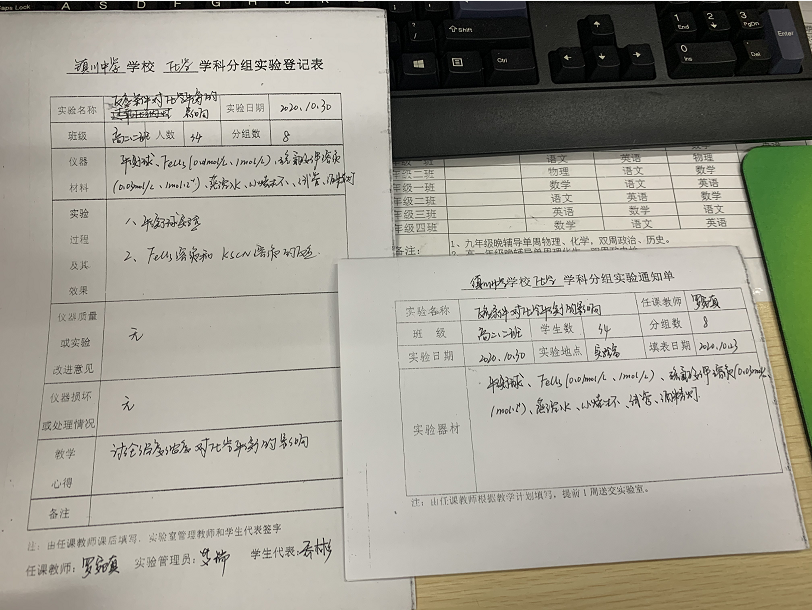 Caps Lock A S D F G H J K L
Shift
Ctrl
1 End 2 3 PgDn Enter
0 Ins Del
镇川中学 学校 化学 学科分组实验登记表
实验名称 改变条件对化学平衡的影响 实验日期 2020.10.30
班级 高二、二班 人数 54 分组数 8
仪器 平衡球、FeCl3(0.01mol/L、1mol/L)、
材料 (0.03mol/L、1mol·L⁻¹)、蒸馏水、小烧杯、试管、酒精灯
实验
过程 1、平衡球实验
及其 2、FeCl3溶液和KSCN溶液的反应
效果
仪器质量
或实验 无
改进意见
仪器损坏 无
或处理情况
教学 讨论温度浓度对化学平衡的影响
心得
备注
注:由任课教师课后填写,实验室管理教师和学生代表签字
任课教师: 实验管理员: 学生代表:
年级一班 语文 英语 物理
年级二班 物理 语文 数学
年级一班 数学 语文 英语
年级二班 语文 英语 数学
年级三班 英语 数学 语文
年级四班 数学 语文 英语
备注: 1、九年级晚辅导单周物理、化学,双周政治、历史。
镇川中学 学校 化学 学科分组实验通知单
实验名称 改变条件对化学平衡的影响 任课教师
班 级 高二、二班 学生数 54 分组数 8
实验日期 2020.10.30 实验地点 实验室 填表日期 2020.10.23
实验器材 平衡球、FeCl3(0.01mol/L、1mol/L)、(0.03mol/L、
1mol·L⁻¹)、蒸馏水、小烧杯、试管、酒精灯
注:由任课教师根据教学计划填写,提前1周送交实验室。